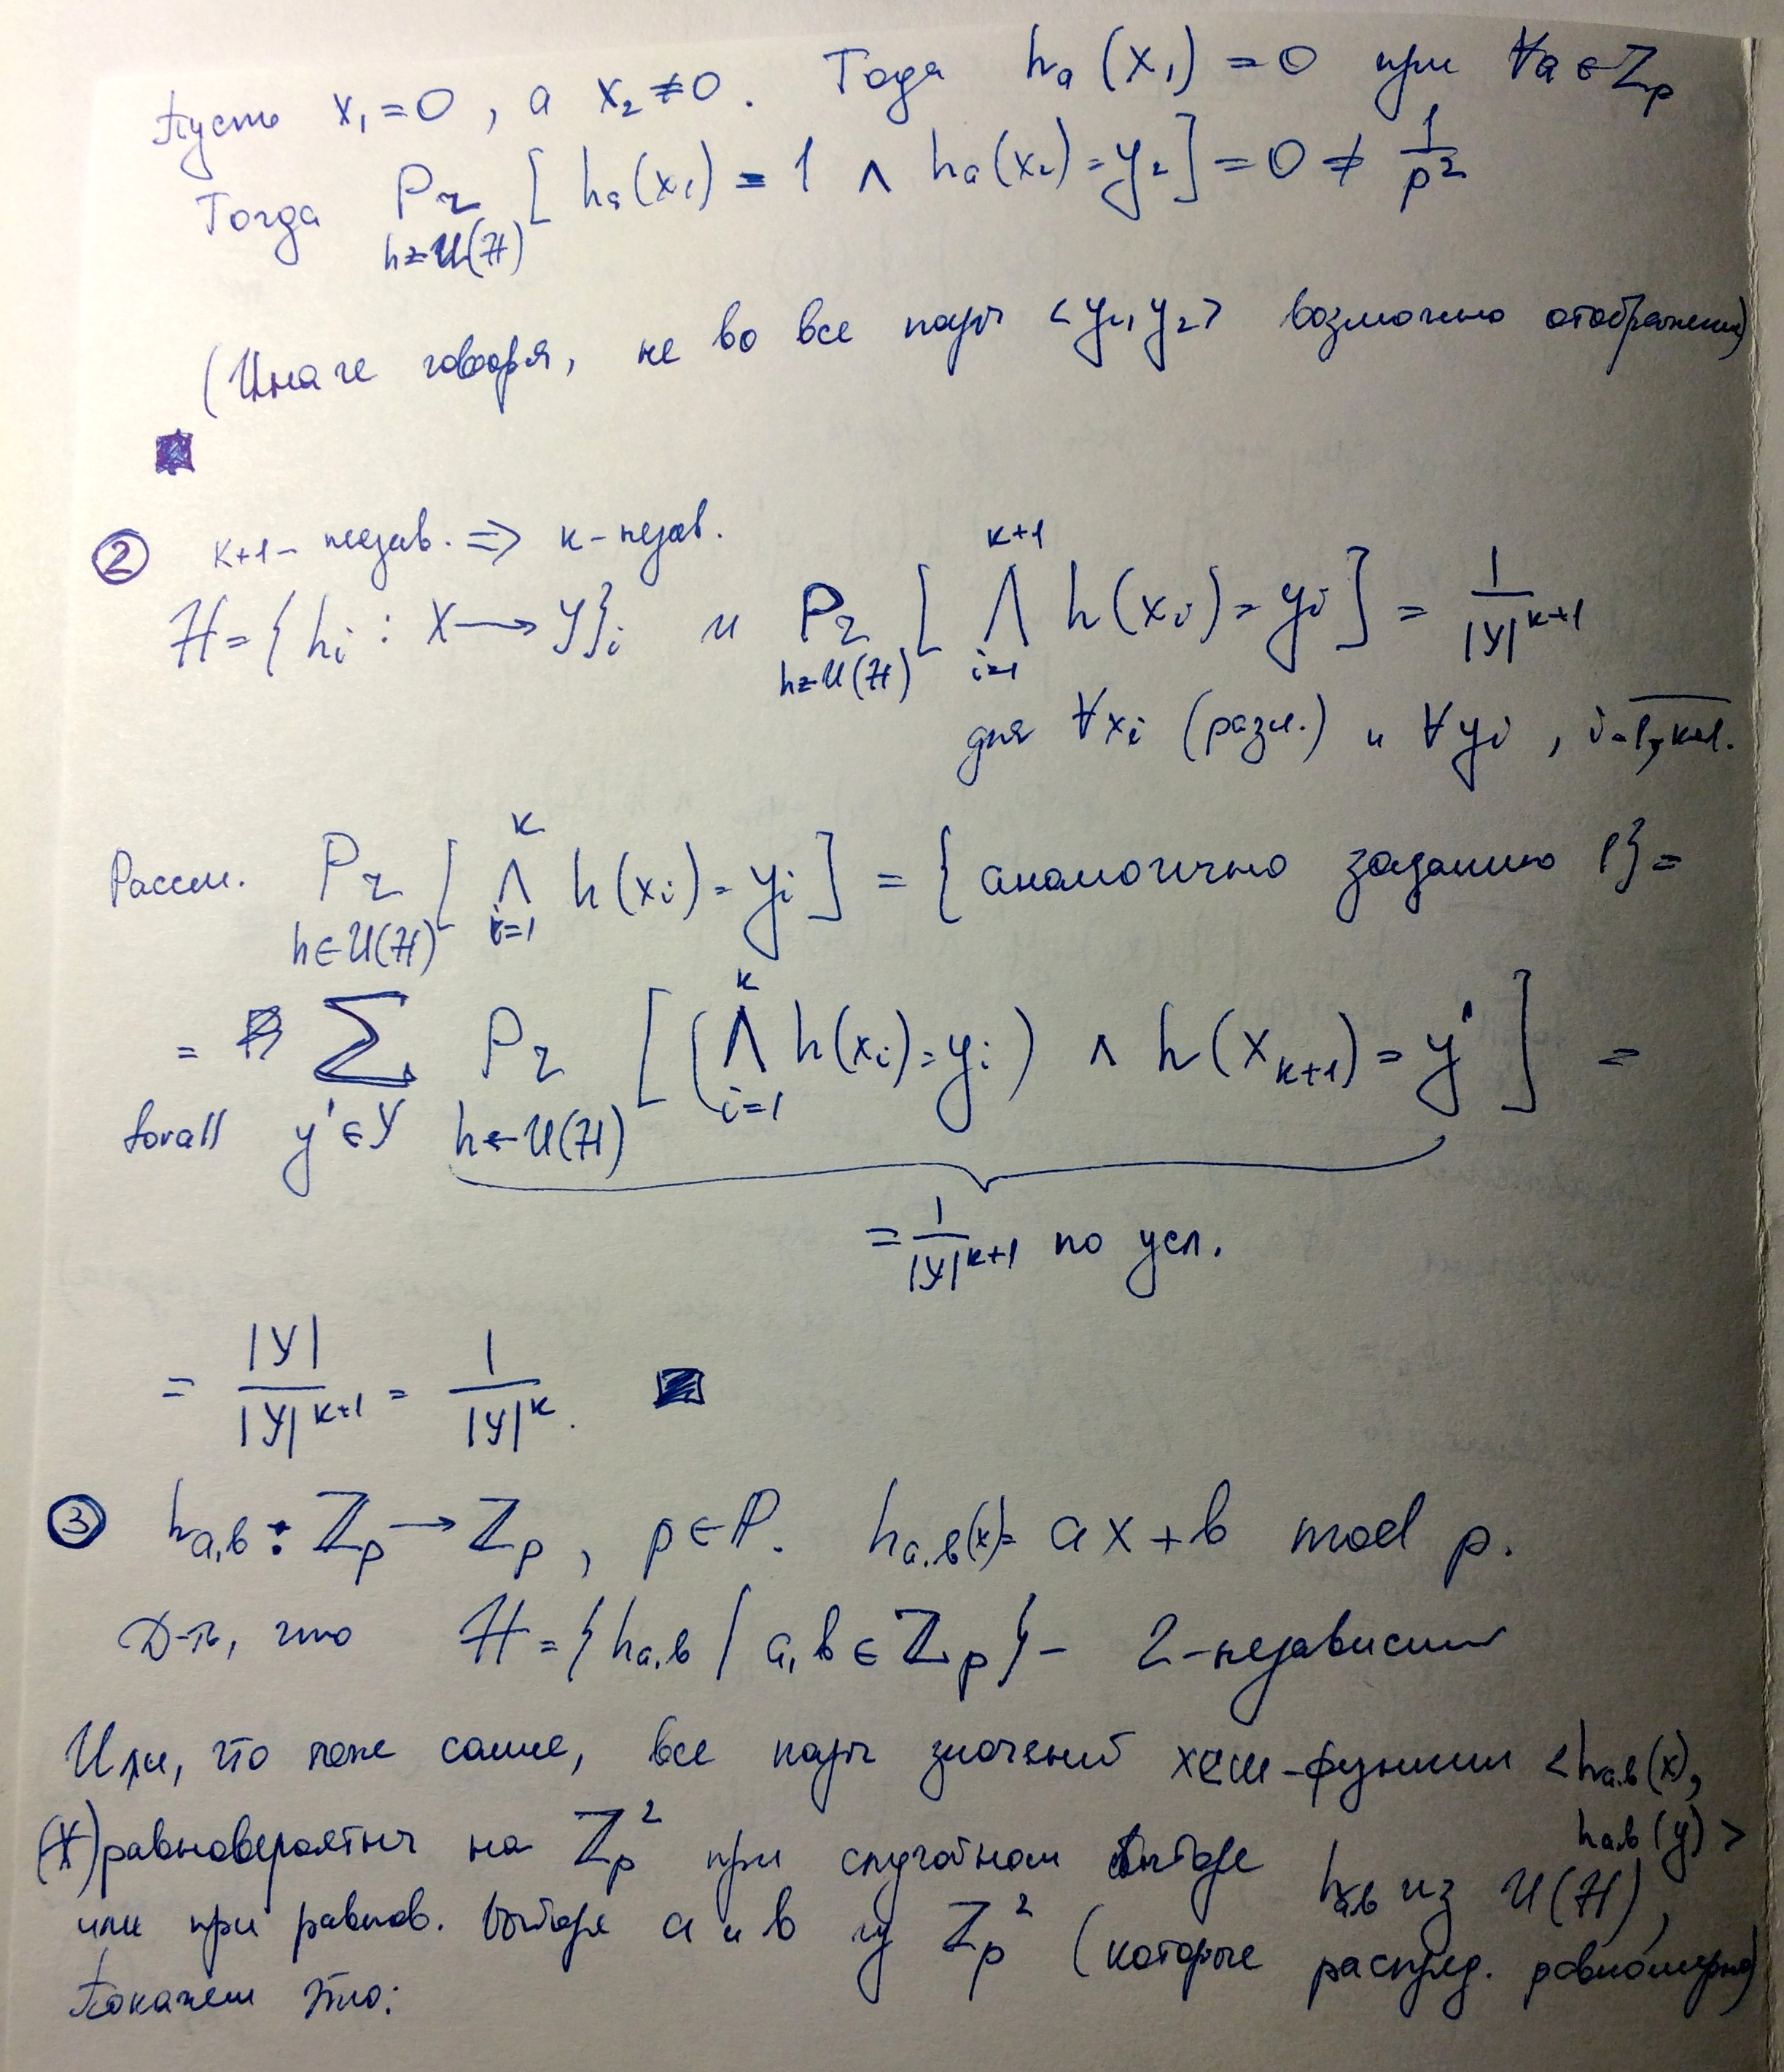 Пусть x₁=0, а x₂≠0. Тогда hₐ(x₁)=0 при ∀a∈ℤₚ
Тогда Pr_{h←U(H)} [hₐ(x₁)=1 ∧ hₐ(x₂)=y₂]=0≠1/p²
(Иначе говоря, не во все пары <y₁,y₂> возможно отображение)
② k+1-незав. ⇒ k-незав.
H={hᵢ: X→Y}ᵢ и Pr_{h←U(H)} [⋀_{i=1}^{k+1} h(xᵢ)=yᵢ] = 1/|Y|^{k+1}
для ∀xᵢ (разл.) и ∀yᵢ, i=1,k+1.
Рассм. Pr_{h∈U(H)} [⋀_{i=1}^{k} h(xᵢ)=yᵢ] = {аналогично заданию 1}=
= ∑_{forall y'∈Y} Pr_{h←U(H)} [(⋀_{i=1}^{k} h(xᵢ)=yᵢ) ∧ h(x_{k+1})=y'] =
=1/|Y|^{k+1} по усл.
= |Y|/|Y|^{k+1} = 1/|Y|^k.
③ h_{a,b}: ℤₚ→ℤₚ, p∈P. h_{a,b}(x)= ax+b mod p.
Д-ть, что H={h_{a,b} | a,b∈ℤₚ} - 2-независим
Или, что тоже самое, все пары значений хеш-функции <h_{a,b}(x),
h_{a,b}(y)>
(*) равновероятны на ℤₚ² при случайном выборе h_{a,b} из U(H),
или при равнов. выборе a и b из ℤₚ² (которые распред. равномерно)
Покажем это: